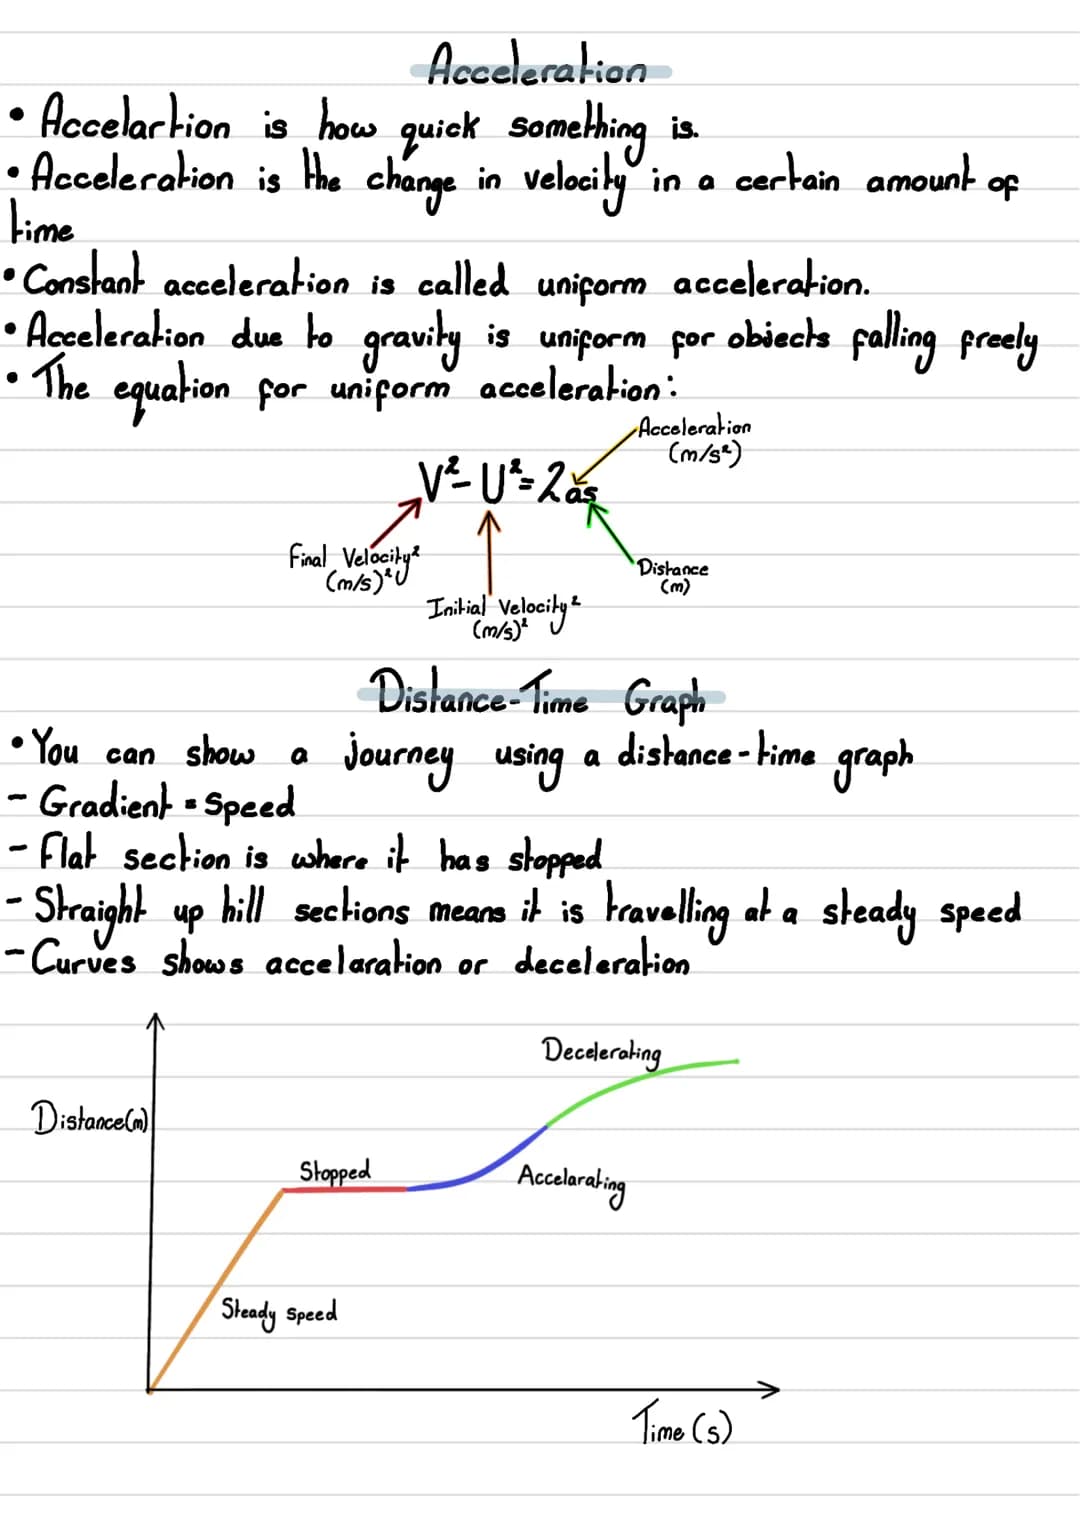 Acceleration
• Accelartion is how quick something is.
• Acceleration is the change in velocity in a certain amount of
time
• Constant acceleration is called uniform acceleration.
• Acceleration due to gravity is uniform for objects falling freely
• The equation for uniform acceleration:
Acceleration
(m/s²)
V²-U²=2as
Final Velocity²
(m/s)²
Distance
(m)
Initial Velocity²
(m/s)²
Distance-Time Graph
• You can show a journey using a distance-time graph
- Gradient = Speed
- Flat section is where it has stopped
- Straight up hill sections means it is travelling at a steady speed
- Curves shows accelaration or deceleration
Decelerating
Distance(m)
Stopped
Accelarating
Steady speed
Time (s)